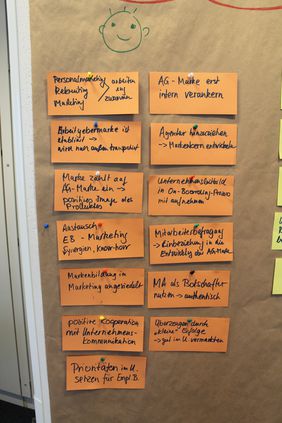 Personalmarketing
Recruiting
Marketing
arbeiten
zusammen
Arbeitgebermarke ist
etabliert →
wird nach außen transportiert
Marke zahlt auf
AG-Marke ein →
positives Image des
Produktes
Austausch
EB - Marketing
Synergien, Know-how
Markenbildung im
Marketing angesiedelt
positive Kooperation
mit Unternehmens-
kommunikation
Prioritäten im U.
setzen für Empl. B.
AG - Marke erst
intern verankern
Agentur hinzuziehen
→ Markenkern entwickeln
Unternehmensleitbild
in On-Boarding-Prozess
mit aufnehmen
Mitarbeiterbefragung
→ Einbeziehung in die
Entwicklg der AG-Marke
MA als Botschafter
nutzen → authentisch
Überzeugen durch
"kleine" Erfolge
→ gut im U. vermarkten